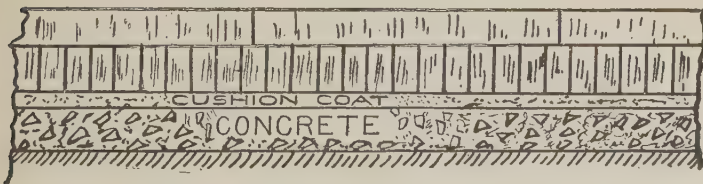 CUSHION COAT
CONCRETE